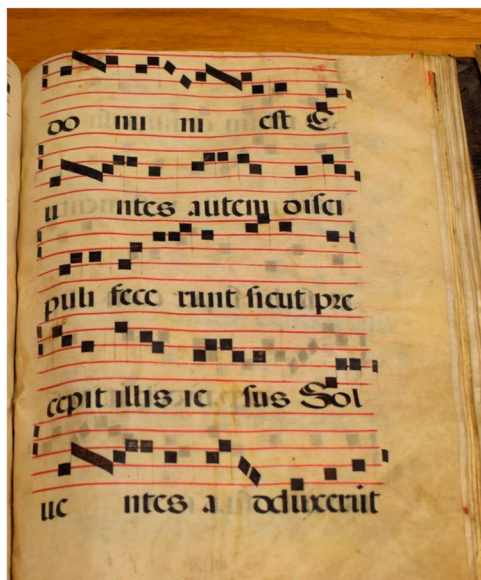 do mi ni est E
u ntes autem disci
puli fece runt sicut pre
cepit illis ie sus Sol
ue ntes a dduxerūt